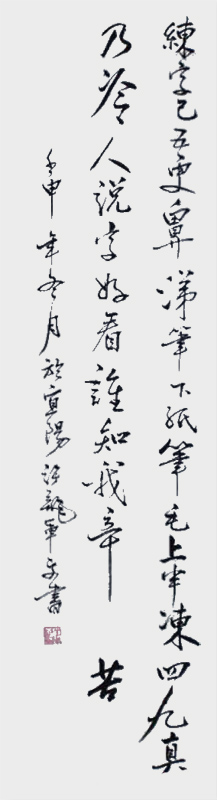 練字已五更鼻涕筆下紙筆毛上半凍四九真
乃冷人說字好看誰知我辛苦
壬申年冬月於宜陽龍軍書